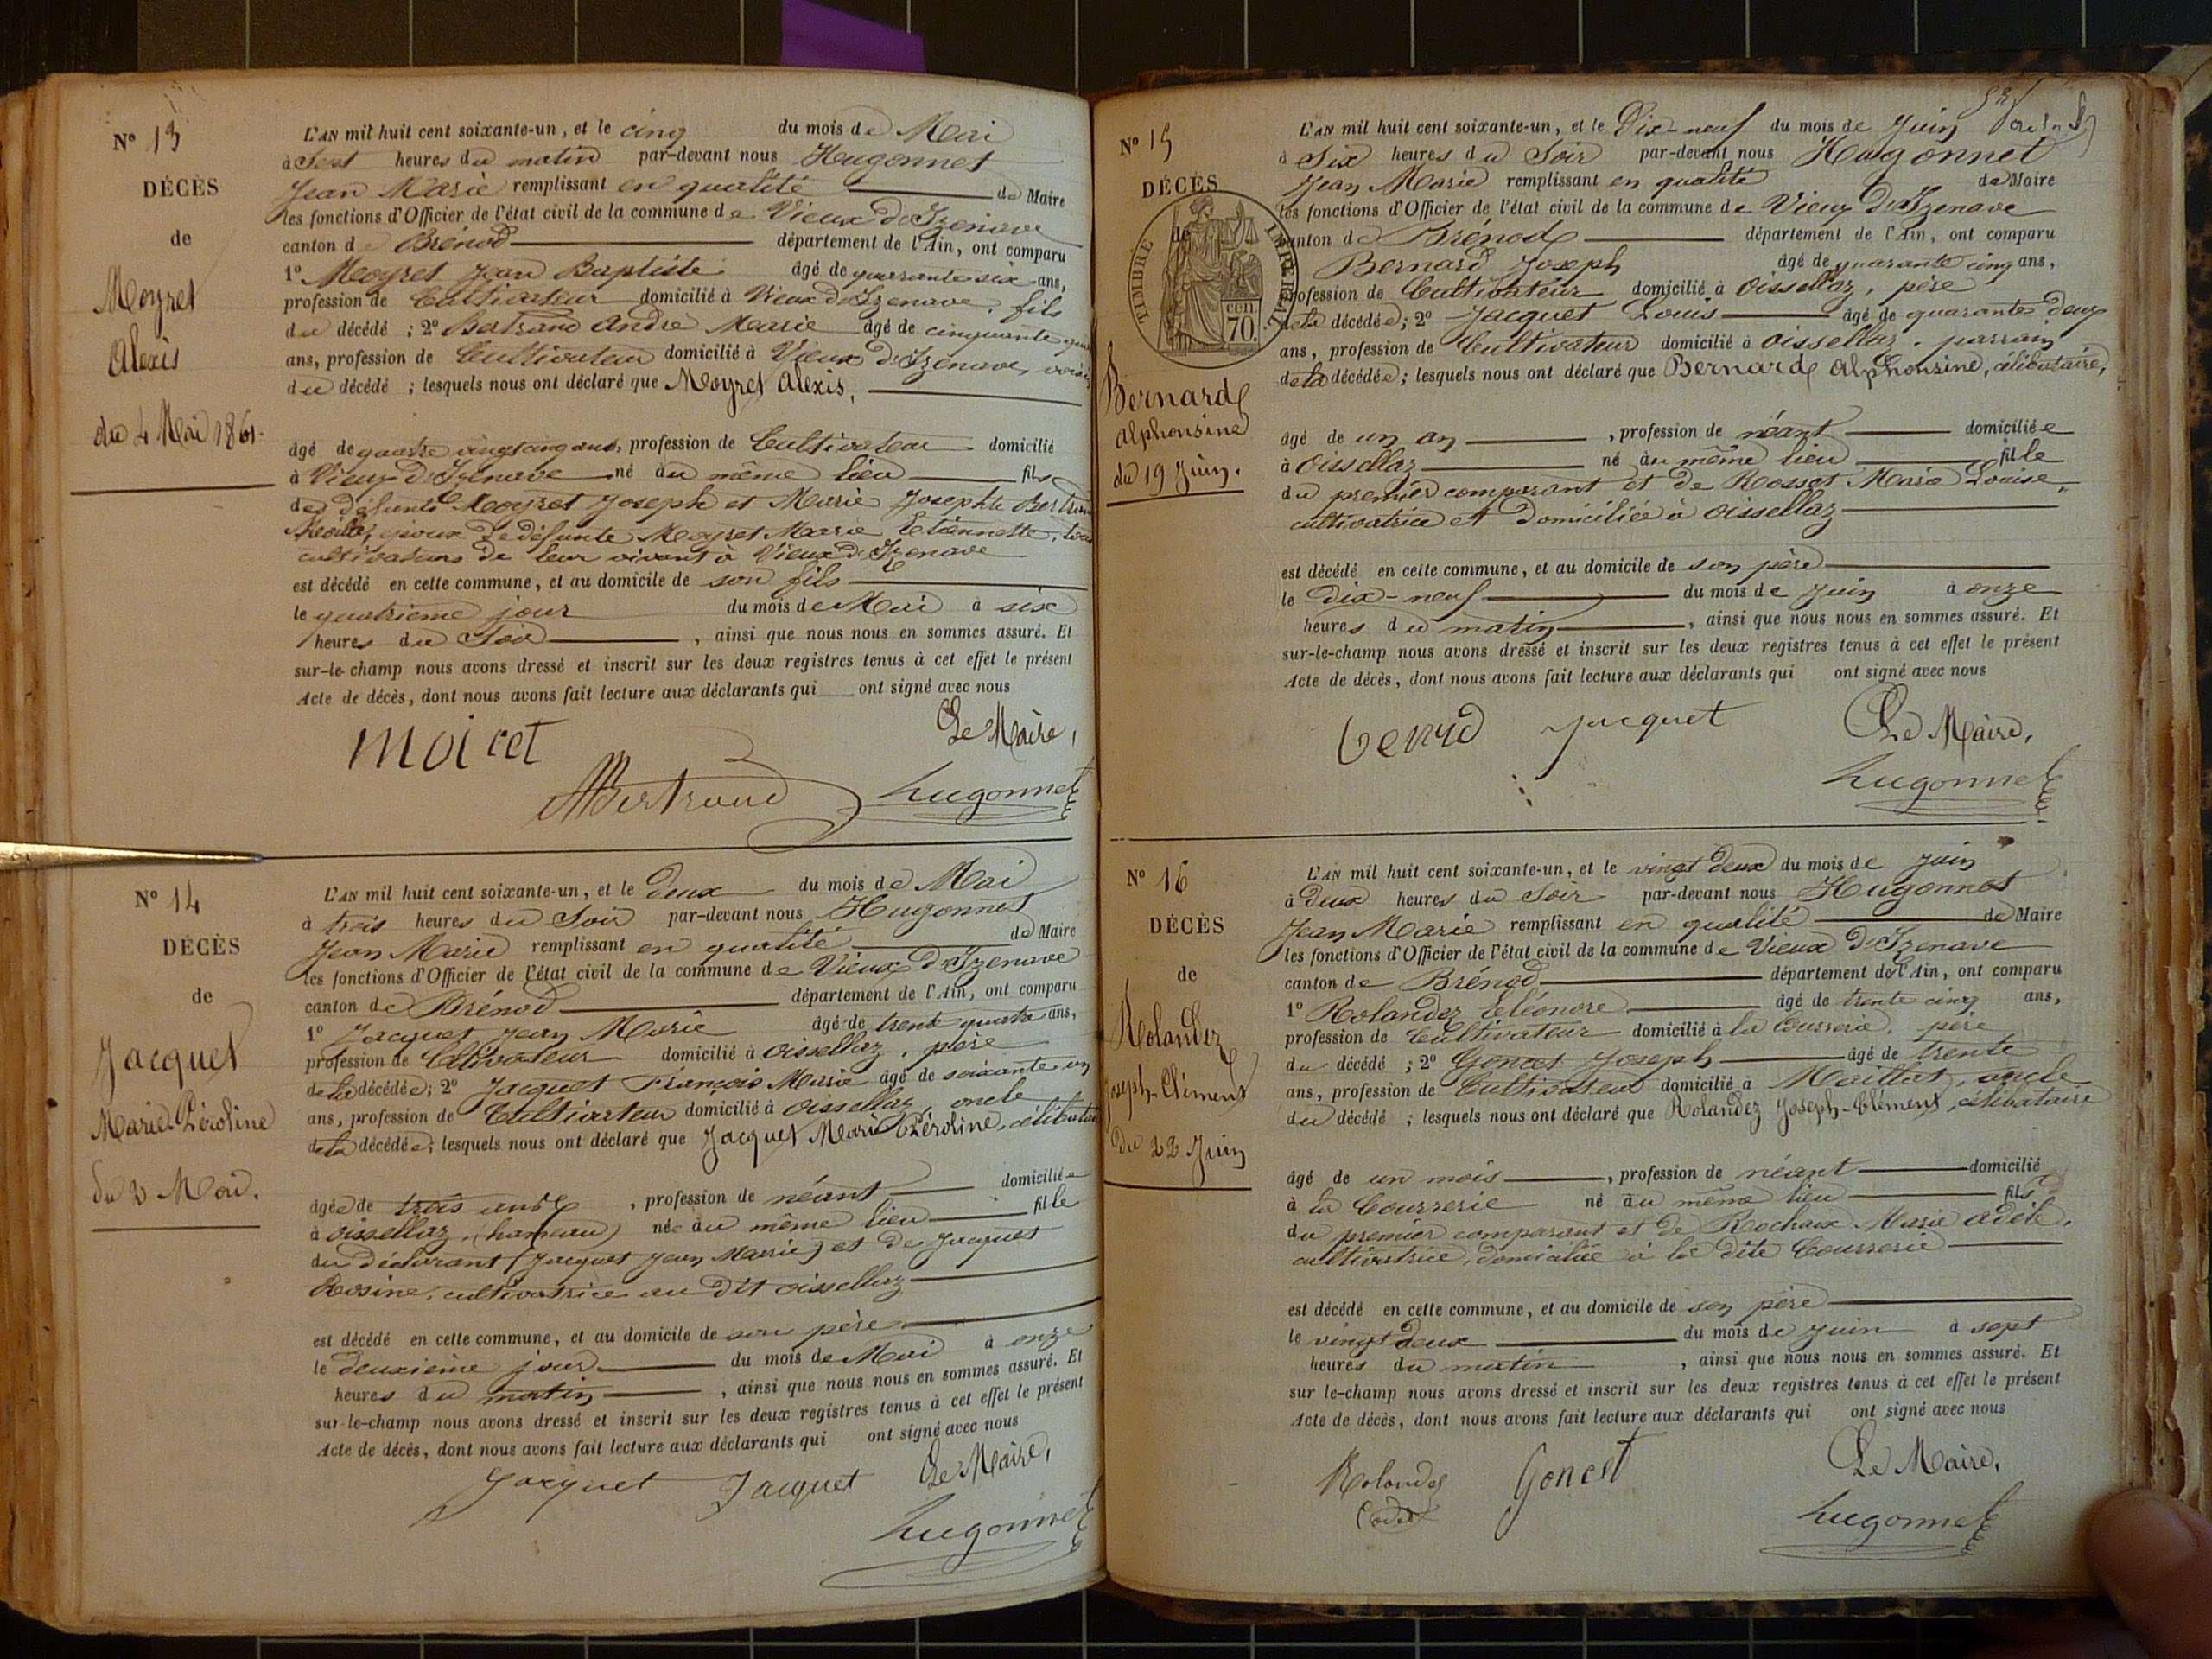 N° 13
DÉCÈS
de
Moyret
Alexis
du 4 Mai 1861.
L'AN mil huit cent soixante-un, et le cinq du mois de Mai
à Sept heures du matin par-devant nous Hugonnet
Jean Marie remplissant en qualité de Maire
les fonctions d'Officier de l'état civil de la commune de Vieux d'Izenave
canton de Brénod département de l'Ain, ont comparu
1° Moyret Jean Baptiste âgé de quarante six ans,
profession de Cultivateur domicilié à Vieux d'Izenave, fils
du décédé ; 2° Bertrand André Marie âgé de cinquante
ans, profession de Cultivateur domicilié à Vieux d'Izenave, voisin
du décédé ; lesquels nous ont déclaré que Moyret Alexis,
âgé de quatre vingt cinq ans, profession de Cultivateur domicilié
à Vieux d'Izenave né au même lieu fils
des défunts Moyret Joseph et Marie Josephte Bertrand
époux de défunte Moyret Marie Etiennette, tous
cultivateurs de leur vivant à Vieux d'Izenave
est décédé en cette commune, et au domicile de son fils
le quatrième jour du mois de Mai à six
heures du Soir , ainsi que nous nous en sommes assuré. Et
sur-le-champ nous avons dressé et inscrit sur les deux registres tenus à cet effet le présent
Acte de décès, dont nous avons fait lecture aux déclarants qui ont signé avec nous
Le Maire,
moiret
ABertrand
hugonnet
N° 14
DÉCÈS
de
Jacquet
Marie-Péroline
du 2 Mai.
L'AN mil huit cent soixante-un, et le deux du mois de Mai
à trois heures du Soir par-devant nous Hugonnet
Jean Marie remplissant en qualité de Maire
les fonctions d'Officier de l'état civil de la commune de Vieux d'Izenave
canton de Brénod département de l'Ain, ont comparu
1° Jacquet Jean Marie âgé de trente quatre ans,
profession de Cultivateur domicilié à Oissellaz, père
de la décédée; 2° Jacquet François Marie âgé de soixante un
ans, profession de Cultivateur domicilié à Oissellaz, oncle
de la décédée; lesquels nous ont déclaré que Jacquet Marie Péroline, célibataire
âgée de trois ans , profession de néant domiciliée
à Oissellaz, (hameau) née au même lieu fille
du déclarant (Jacquet Jean Marie) et de Jacquet
Rosine, cultivatrice au dit oissellaz
est décédé en cette commune, et au domicile de son père
le deuxième jour du mois de Mai à onze
heures du matin , ainsi que nous nous en sommes assuré. Et
sur-le-champ nous avons dressé et inscrit sur les deux registres tenus à cet effet le présent
Acte de décès, dont nous avons fait lecture aux déclarants qui ont signé avec nous
Le Maire,
Jacquet Jacquet
hugonnet
N° 15
DÉCÈS
de
TIMBRE IMPÉRIAL
70 cen
Bernard
Alphonsine
du 19 Juin.
L'AN mil huit cent soixante-un, et le Dix-neuf du mois de Juin
à Six heures du Soir par-devant nous Hugonnet
Jean Marie remplissant en qualité de Maire
les fonctions d'Officier de l'état civil de la commune de Vieux d'Izenave
canton de Brénod département de l'Ain, ont comparu
Bernard Joseph âgé de quarante cinq ans,
profession de Cultivateur domicilié à Oissellaz, père
de la décédée; 2° Jacquet Louis âgé de quarante deux
ans, profession de Cultivateur domicilié à Oissellaz, parrain
de la décédée; lesquels nous ont déclaré que Bernard Alphonsine, célibataire,
âgé de un an , profession de néant domiciliée
à Oissellaz né au même lieu fille
du premier comparant et de Rosset Marie Louise,
cultivatrice et domiciliée à Oissellaz
est décédé en cette commune, et au domicile de son père
le dix-neuf du mois de Juin à onze
heures du matin , ainsi que nous nous en sommes assuré. Et
sur-le-champ nous avons dressé et inscrit sur les deux registres tenus à cet effet le présent
Acte de décès, dont nous avons fait lecture aux déclarants qui ont signé avec nous
jacquet Le Maire,
hugonnet
N° 16
DÉCÈS
de
Rolandez
Joseph-Clément
du 22 Juin
L'AN mil huit cent soixante-un, et le vingt deux du mois de Juin
à deux heures du Soir par-devant nous Hugonnet
Jean Marie remplissant en qualité de Maire
les fonctions d'Officier de l'état civil de la commune de Vieux d'Izenave
canton de Brénod département de l'Ain, ont comparu
1° Rolandez Eléonore âgé de trente cinq ans,
profession de Cultivateur domicilié à la Courrerie, père
du décédé ; 2° Goncet Joseph âgé de trente
ans, profession de Cultivateur domicilié à Maillat, oncle
du décédé ; lesquels nous ont déclaré que Rolandez Joseph-Clément, célibataire
âgé de un mois , profession de néant domicilié
à la Courrerie né au même lieu fils
du premier comparant et de Rochaix Marie Adèle,
cultivatrice, domiciliée à la dite Courrerie
est décédé en cette commune, et au domicile de son père
le vingt deux du mois de Juin à sept
heures du matin , ainsi que nous nous en sommes assuré. Et
sur le-champ nous avons dressé et inscrit sur les deux registres tenus à cet effet le présent
Acte de décès, dont nous avons fait lecture aux déclarants qui ont signé avec nous
Rolandez Goncet Le Maire,
hugonnet